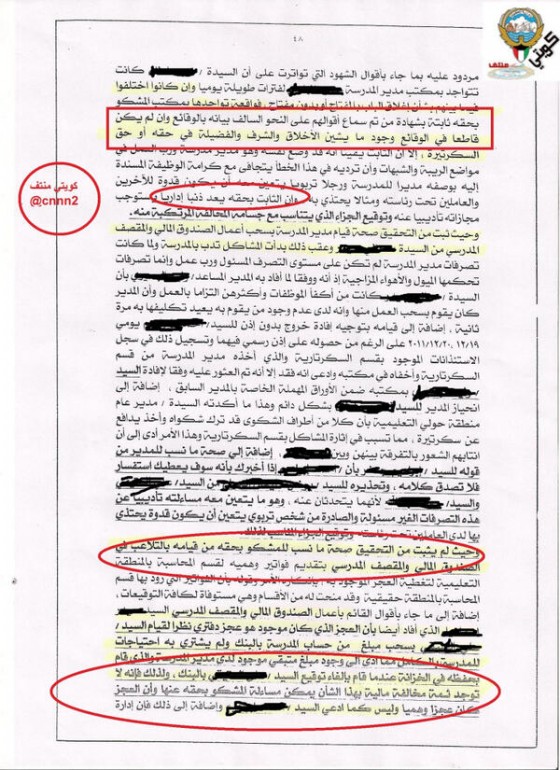 كويتي منتف
٤٨
مردود عليه بما جاء بأقوال الشهود التي تواترت على أن السيدة / كانت
تتواجد بمكتب مدير المدرسة لفترات طويلة يوميا وإن كانوا اختلفوا
فيما بينهم بشأن إغلاق الباب بالمفتاح أو بدون مفتاح، فواقعة تواجدها بمكتب المشكو
بحقه ثابتة بشهادة من تم سماع أقوالهم على النحو السالف بيانه بالوقائع وإن لم يكن
قاطعا في الوقائع وجود ما يشين الأخلاق والشرف والفضيلة في حقه أو حق
السكرتيرة، إلا أن الثابت يقينا أنه قد وضع نفسه وهو مدير مدرسة ورب العمل في
مواضع الريبة والشبهات وأن ترديه في هذا الخطأ يتجافى مع كرامة الوظيفة المسندة
إليه بوصفه مديرا للمدرسة ورجلا تربويا يتعين معه أن يكون قدوة للآخرين
والعاملين تحت رئاسته ومثالا يحتذى به وإن الثابت بحقه يعد ذنبا إداريا يستوجب
مجازاته تأديبيا عنه وتوقيع الجزاء الذي يتناسب مع جسامة المخالفة المرتكبة منه.
وحيث ثبت من التحقيق صحة قيام مدير المدرسة بسحب أعمال الصندوق المالي والمقصف
المدرسي من السيدة / وعقب ذلك بدأت المشاكل تدب بالمدرسة ولما كانت
تصرفات مدير المدرسة لم تكن على مستوى التصرف المسئول ورب عمل وإنما تصرفات
تحكمها الميول والأهواء المزاجية إذ أنه ووفقا لما أفاد به المدير المساعد / بأن
السيدة / كانت من أكفأ الموظفات وأكثرهن التزاما بالعمل وأن المدير
كان يقوم بسحب العمل منها وأنه لدى عدم وجود من يقوم به يعيد تكليفها به مرة
ثانية، إضافة إلى قيامه بتوجيه إفادة خروج بدون إذن للسيد / يومي
١٢/١٩، ٢٠١١/١٢/٢٠ على الرغم من حصوله على إذن رسمي فيهما وتسجيل ذلك في سجل
الاستئذانات الموجود بقسم السكرتارية والذي أخذه مدير المدرسة من قسم
السكرتارية وأخفاه في مكتبه وادعى أنه فقد إلا أنه تم العثور عليه وفقا لإفادة السيد
/ بمكتبه ضمن الأوراق المهملة الخاصة بالمدير السابق، إضافة إلى
انحياز المدير للسيدة / بشكل دائم وهذا ما أكدته السيدة / مدير عام
منطقة حولي التعليمية بأن كلا من أطراف الشكوى قد ترك شكواه وأخذ يدافع
عن سكرتيرة، مما تسبب في إثارة المشاكل بقسم السكرتارية وهذا الأمر أدى إلى أن
انتابهم الشعور بالتفرقة بينهن وبين ، إضافة إلى صحة ما نسب للمدير من
قوله للسيد / بأن / إذا أخبرك بأنه سوف يعطيك استفسار
فلا تصدق كلامه، وتحذيره للسيد / من السيد /
والسيد / لأنهما يتحدثان عنه، وهو ما يتعين معه مساءلته تأديبيا عن
هذه التصرفات الغير مسئولة والصادرة من شخص تربوي يتعين أن يكون قدوة يحتذى
بها لدى العاملين تحت رئاسته وتوقيع الجزاء المناسب لذلك.
وحيث لم يثبت من التحقيق صحة ما نسب للمشكو بحقه من قيامه بالتلاعب في
الصندوق المالي والمقصف المدرسي بتقديم فواتير وهمية لقسم المحاسبة بالمنطقة
التعليمية لتغطية العجز الموجود به، بإنكاره الأمر وقوله بأن الفواتير التي زود بها قسم
المحاسبة بالمنطقة حقيقية وقد منحت له من الأقسام وهي مستوفاة لكافة التوقيعات،
إضافة إلى ما جاء بأقوال القائم بأعمال الصندوق المالي والمقصف المدرسي السيد /
الذي أفاد أيضا بأن العجز الذي كان موجود هو عجز دفتري نظرا لقيام السيد /
بسحب مبلغ من حساب المدرسة بالبنك ولم يشتري به احتياجات
للمدرسة بالكامل مما أدى إلى وجود مبلغ متبقي موجود لدى مدير المدرسة والذي قام
بحفظه في الخزانة عندما قام بإلغاء توقيع السيد / بالبنك، ولذلك فإنه لا
توجد ثمة مخالفة مالية بهذا الشأن يمكن مساءلة المشكو بحقه عنها وأن العجز
كان عجزا وهميا وليس كما ادعى السيد / وإضافة إلى ذلك فإن إدارة
كويتي منتف
@cnnn2